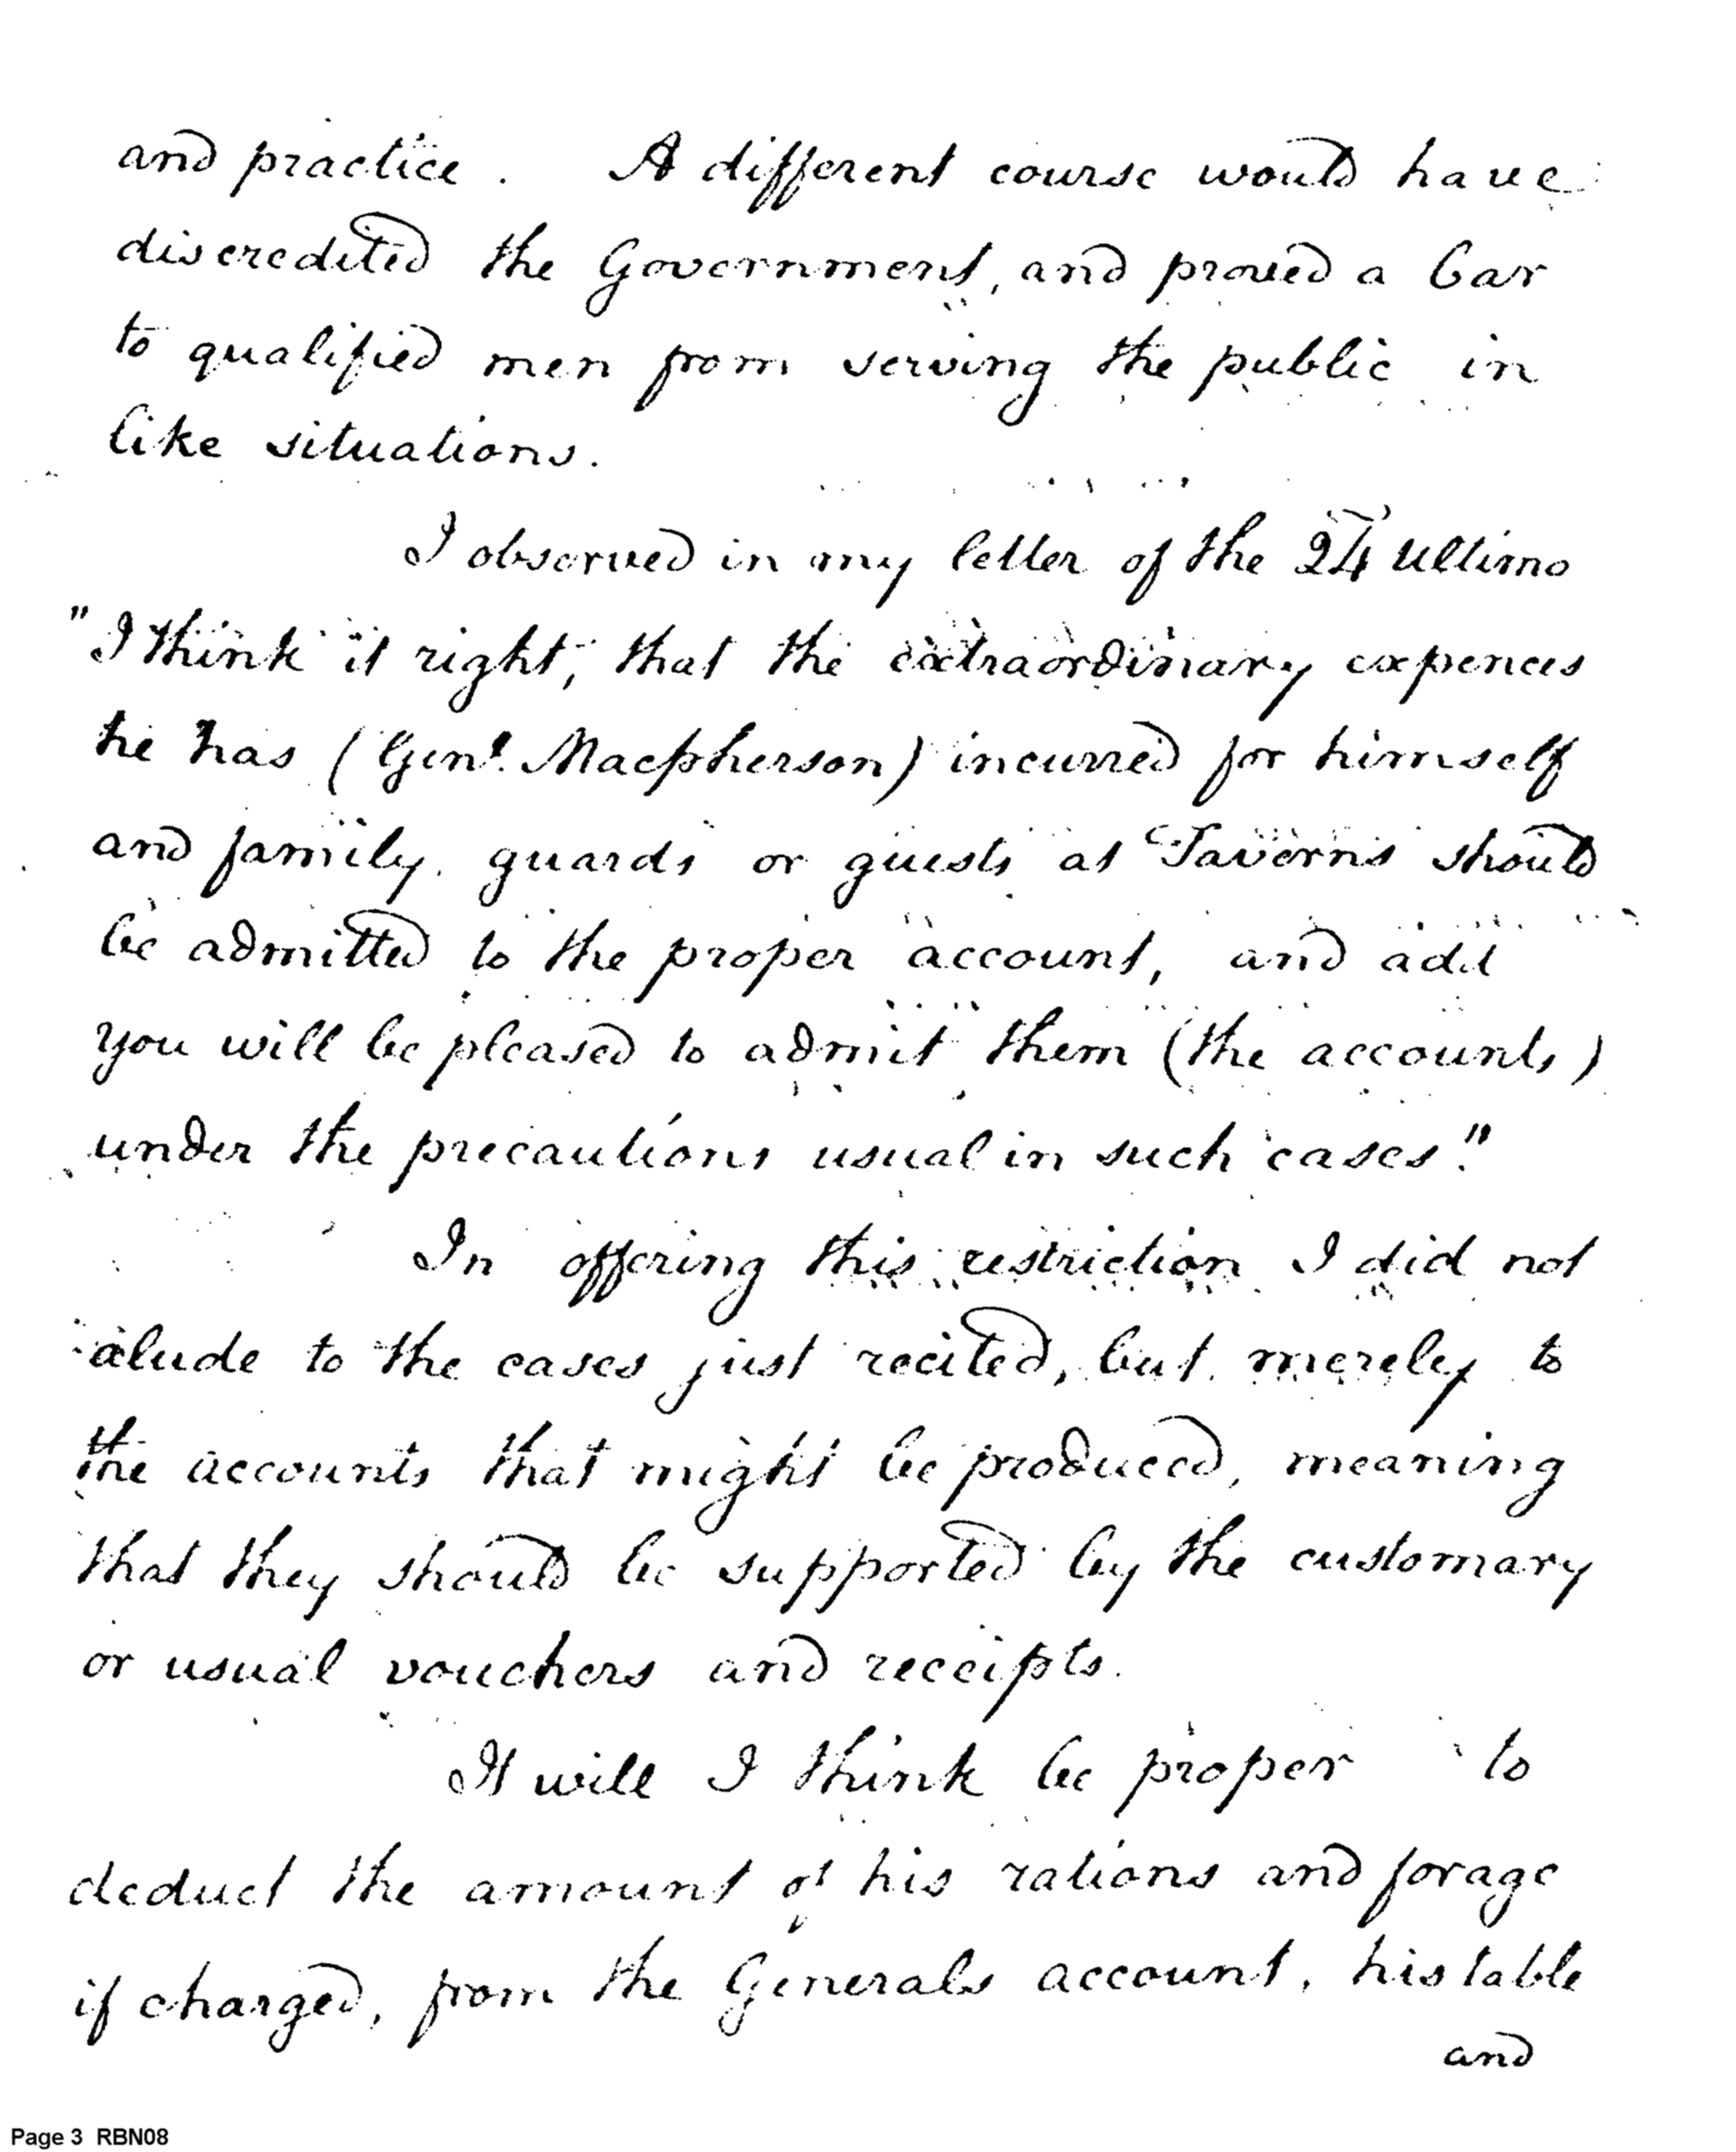 and practice. A different course would have
discredited the Government, and proved a bar
to qualified men from serving the public in
like situations.
I observed in my letter of the 24 Ultimo
"I think it right, that the extraordinary expences
he has (Genl. Macpherson) incurred for himself
and family, guards or guests at Taverns should
be admitted to the proper account, and add
you will be pleased to admit them (the accounts)
under the precautions usual in such cases."
In offering this restriction I did not
alude to the cases just recited, but merely to
the accounts that might be produced, meaning
that they should be supported by the customary
or usual vouchers and receipts.
It will I think be proper to
deduct the amount of his rations and forage
if charged, from the Generals account, his table
and
Page 3 RBN08